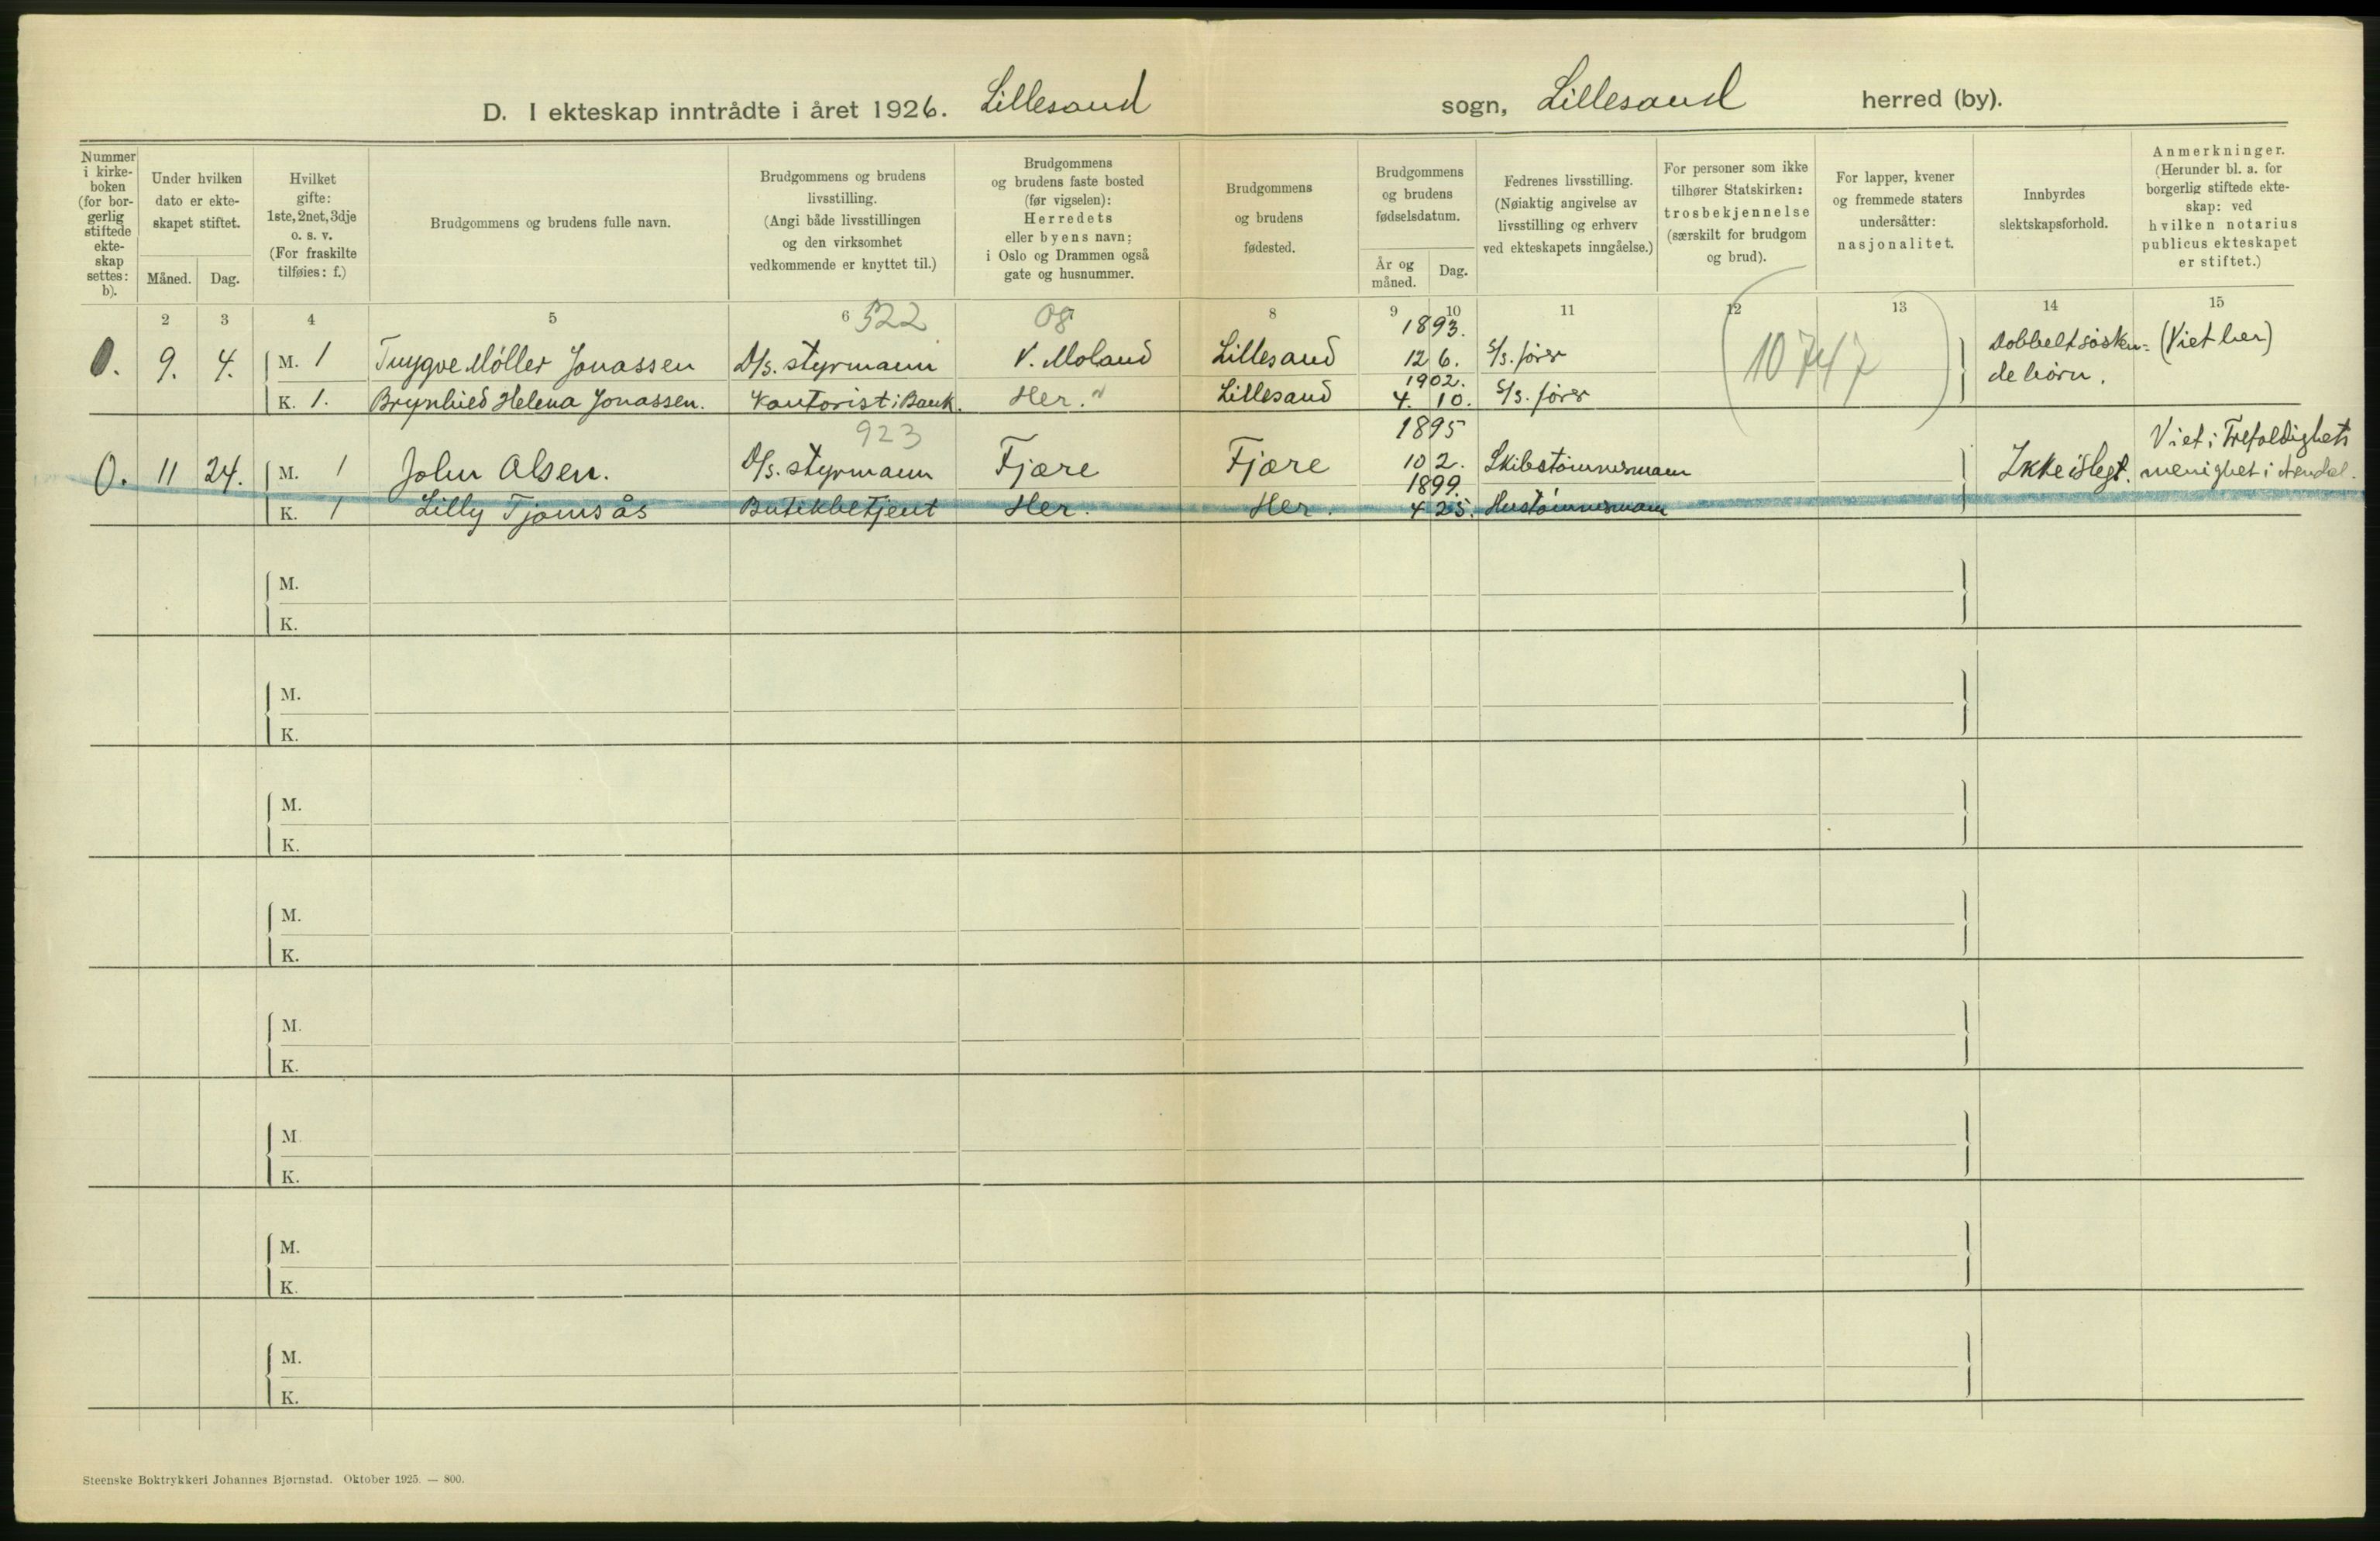 D. I ekteskap inntrådte i året 1926. Lillesand sogn, Lillesand herred (by).
Nummer
i kirke-
boken
(for bor-
gerlig
stiftede
ekte-
skap
settes:
b).
Under hvilken
dato er ekte-
skapet stiftet.
Måned. Dag.
Hvilket
gifte:
1ste, 2net, 3dje
o. s. v.
(For fraskilte
tilføies: f.)
Brudgommens og brudens fulle navn.
Brudgommens og brudens
livsstilling.
(Angi både livsstillingen
og den virksomhet
vedkommende er knyttet til.)
Brudgommens
og brudens faste bosted
(før vigselen):
Herredets
eller byens navn;
i Oslo og Drammen også
gate og husnummer.
Brudgommens
og brudens
fødested.
Brudgommens
og brudens
fødselsdatum.
År og
måned.
Dag.
Fedrenes livsstilling.
(Nøiaktig angivelse av
livsstilling og erhverv
ved ekteskapets inngåelse.)
For personer som ikke
tilhører Statskirken:
trosbekjennelse
(særskilt for brudgom
og brud).
For lapper, kvener
og fremmede staters
undersåtter:
nasjonalitet.
Innbyrdes
slektskapsforhold.
Anmerkninger.
(Herunder bl. a. for
borgerlig stiftede ekte-
skap: ved
hvilken notarius
publicus ekteskapet
er stiftet.)
2 3 4 5 6 522 08 8 9 10 11 12 13 14 15
1893.
0. 9. 4. M. 1 Trygve Møller Jonassen D/s. styrmann V. Moland Lillesand 12 6. S/s. fører 10747 Dobbeltsøsken= (Viet her)
1902.
K. 1. Brynhild Helena Jonassen. Kontorist i Bank. Her. " Lillesand 4. 10. S/s. fører debørn.
923 1895 Viet i Trefoldighets
0. 11 24. M. 1 John Olsen. D/s. styrmann Fjære Fjære 10 2. Skibstømmermann Ikke i slegt. menighet i Arendal.
1899.
K. 1 Lilly Tjømsås Butikbetjent Her. Her. 4 25. Hustømmermann
M.
K.
M.
K.
M.
K.
M.
K.
M.
K.
M.
K.
M.
K.
M.
K.
Steenske Boktrykkeri Johannes Bjørnstad. Oktober 1925. — 800.